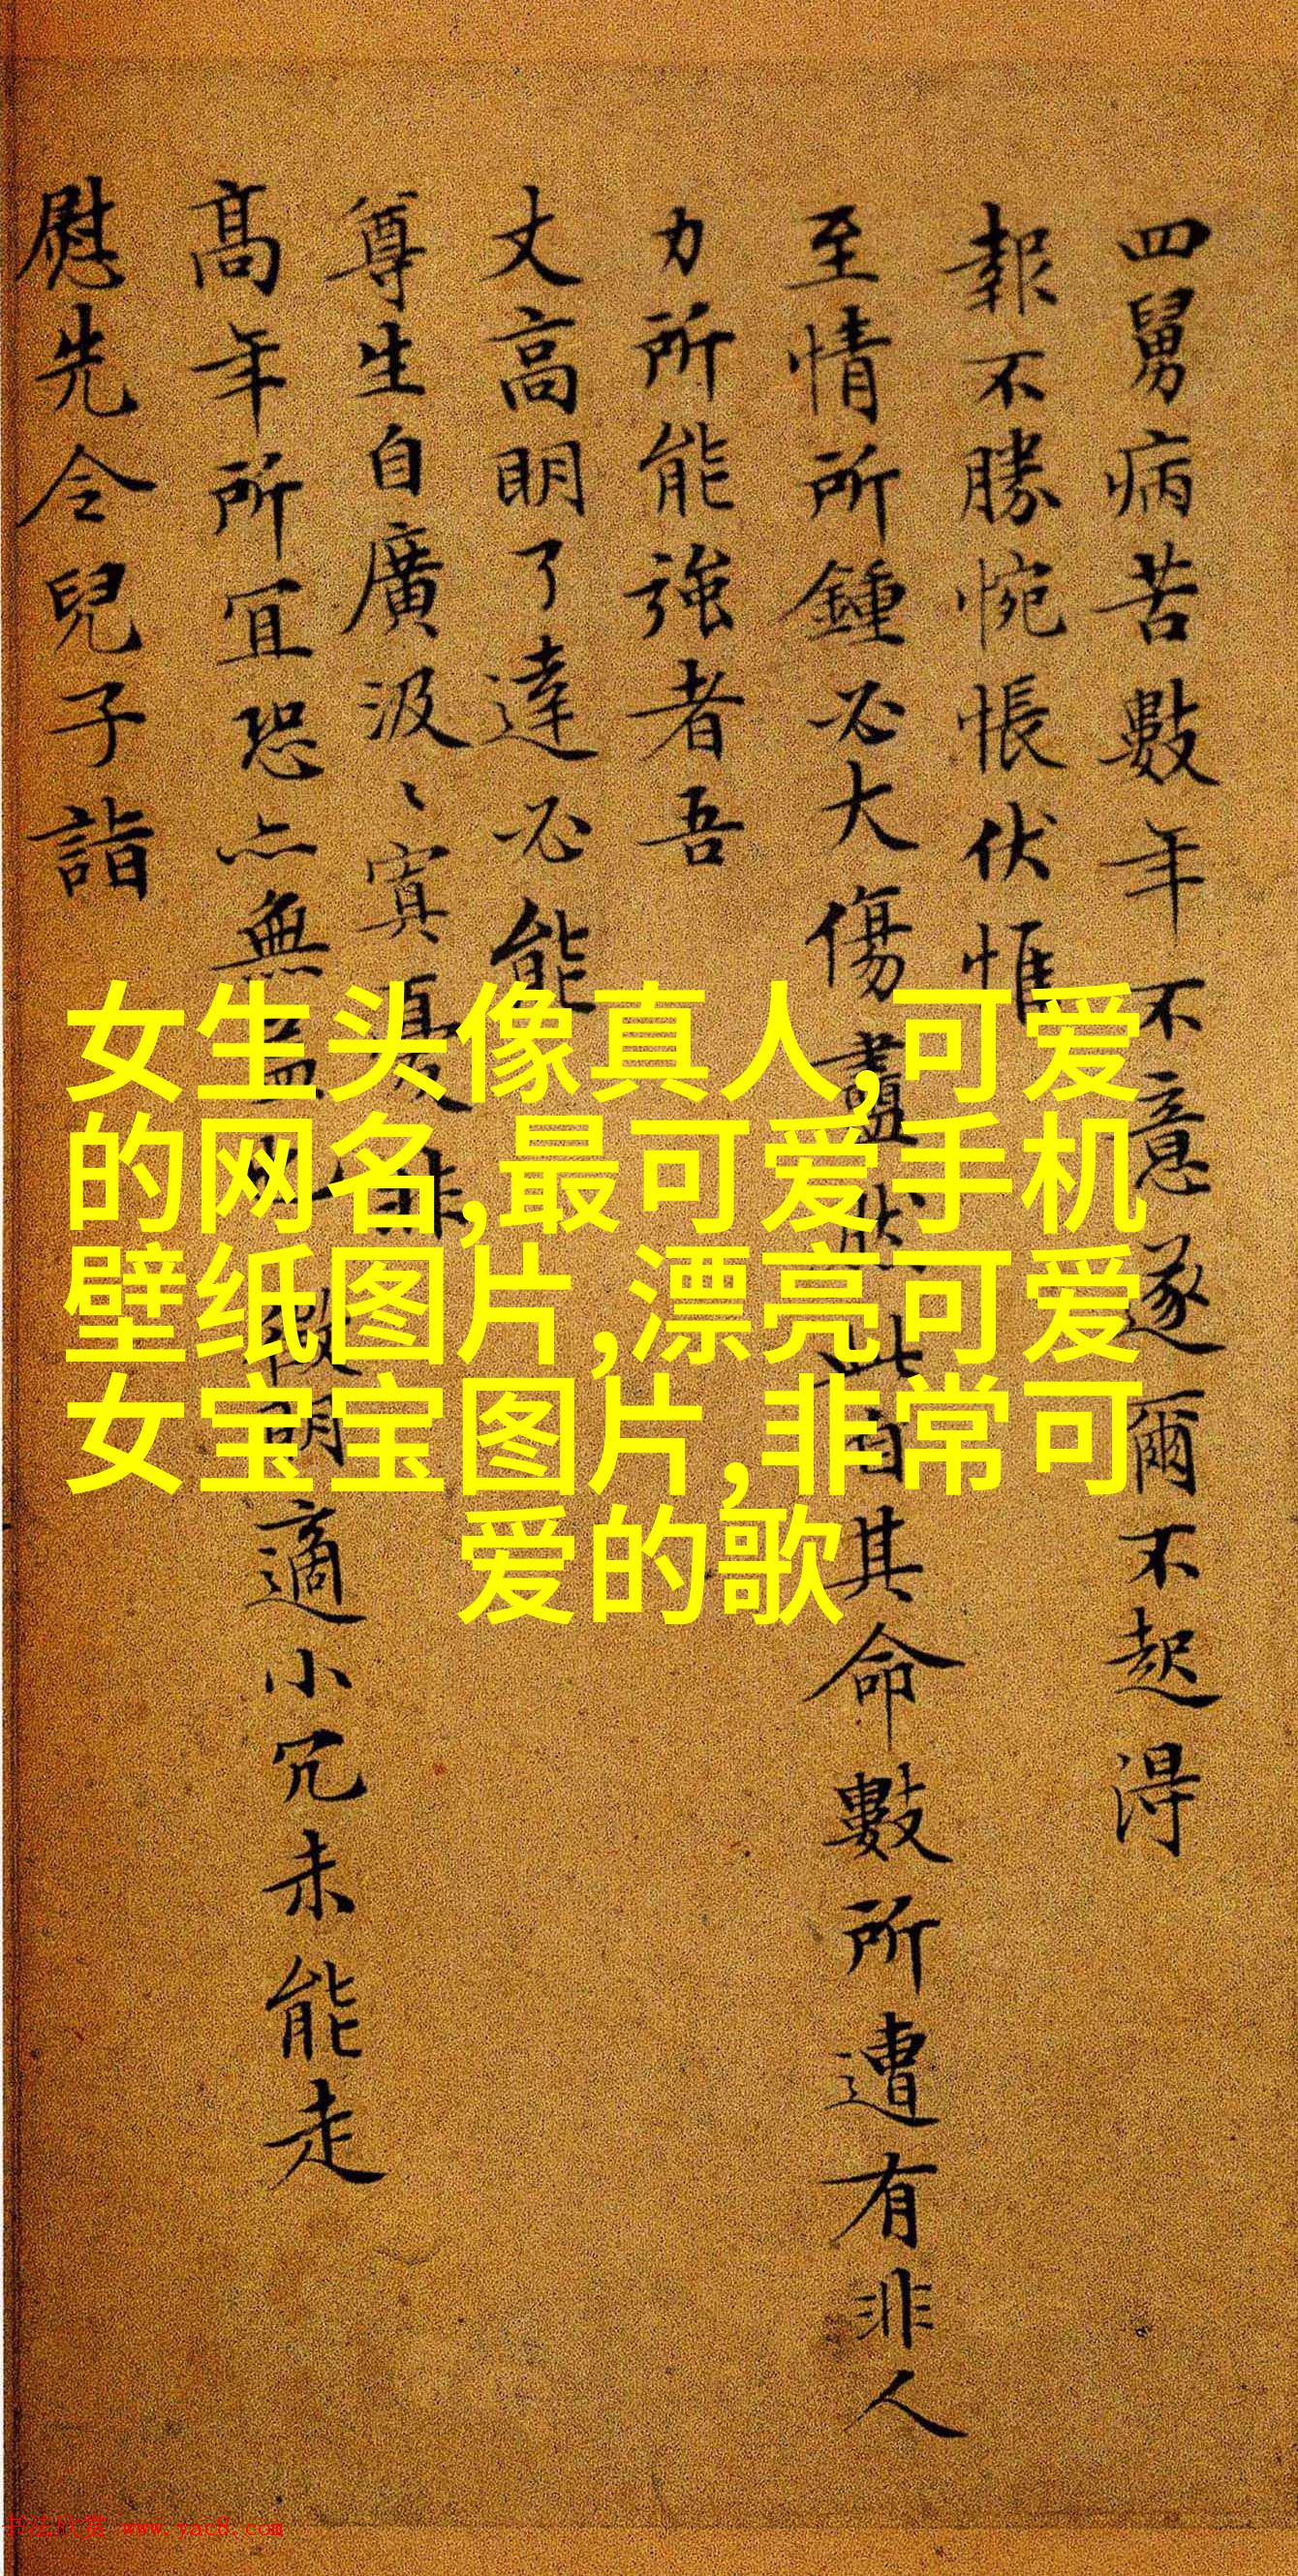 四舅病苦數年不意遂爾不起得
報不勝惋悵伏惟
至情所鍾必大傷盡然此自其命數所遭有非人
力所能強者吾
丈高明了達必能
尊生自廣汲〻寘憂非
高年所宜恐亦無益也微朗適小冗未能走
慰先令兒子詣
女生头像真人,可爱
的网名,最可爱手机
壁纸图片,漂亮可爱
女宝宝图片,非常可
爱的歌
书法欣赏 www.yac8.com